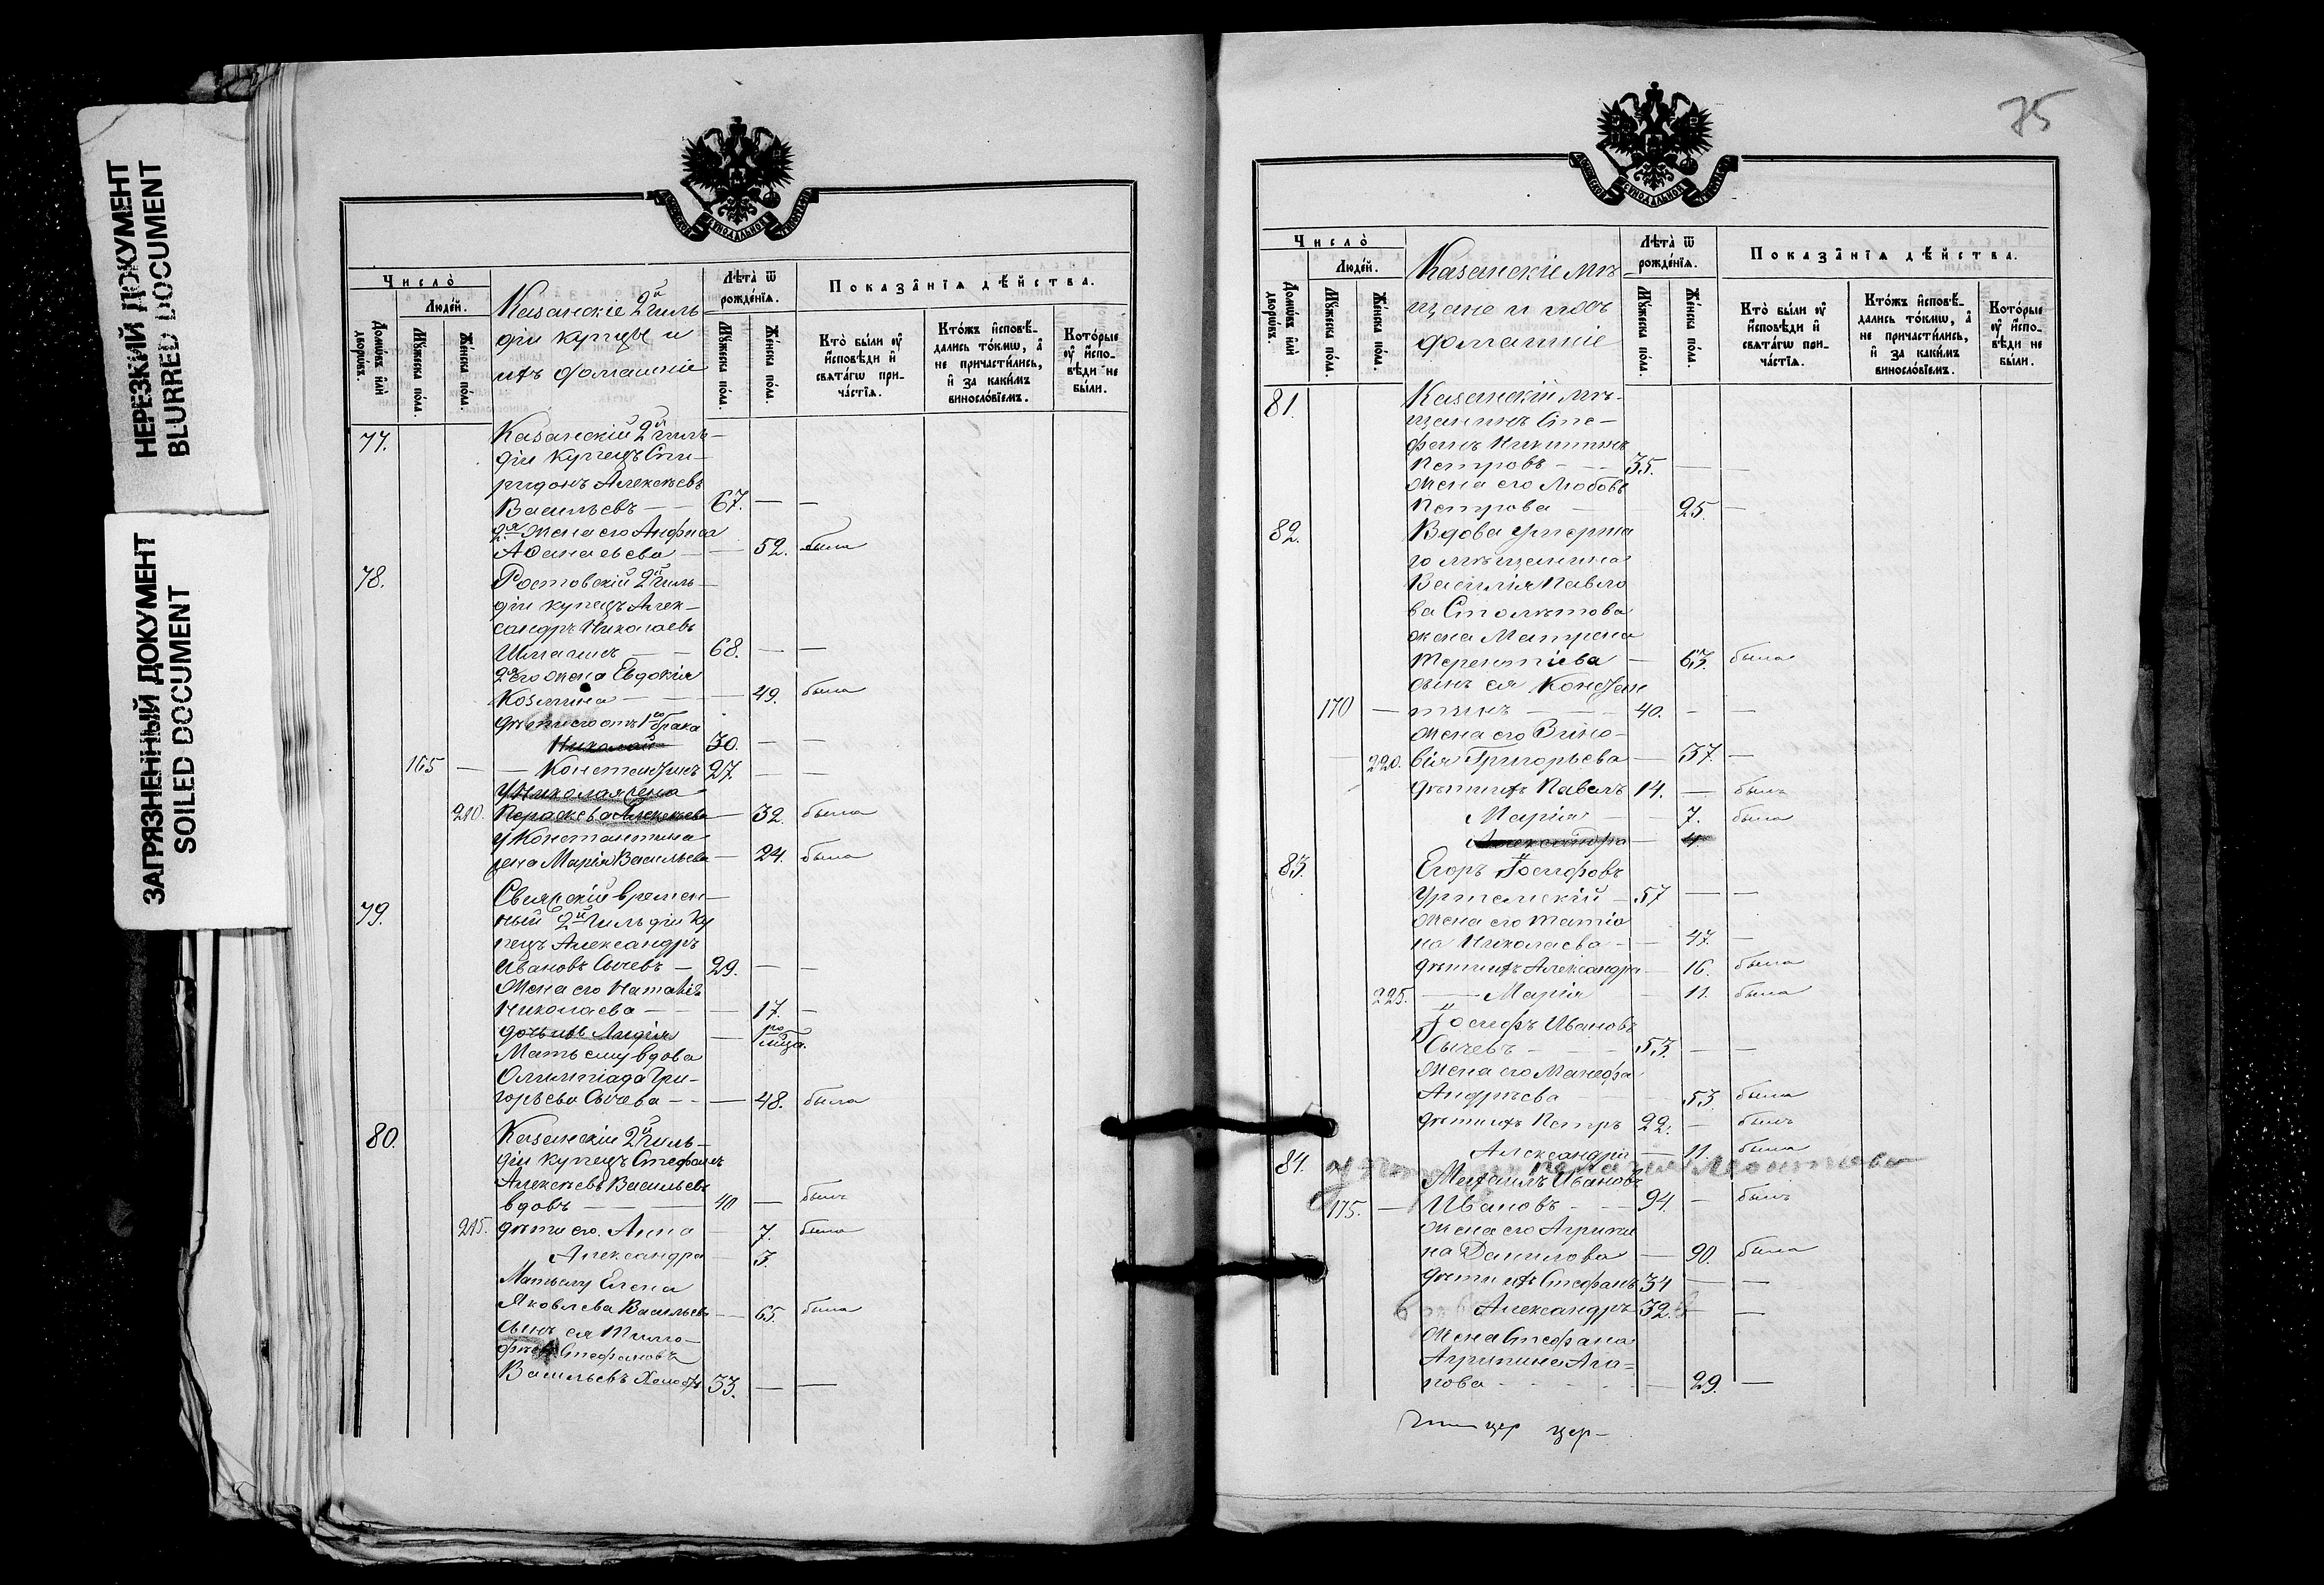 НЕРЕЗКИЙ ДОКУМЕНТ
BLURRED DOCUMENT
ЗАГРЯЗНЕННЫЙ ДОКУМЕНТ
SOILED DOCUMENT
Число̀
Люде́й.
Домѡ́въ и҆лѝ дворѡ́въ.
Мꙋ́жеска по́ла.
Же́нска по́ла.
Казанскіе 2й гиль-
діи купцы и
ихъ домашніе
Лѣта̀ ѿ
рожде́нїѧ.
Мꙋ́жеска по́ла.
Же́нска по́ла.
Показа̑нїѧ дѣ́йства.
Кто̀ бы́ли оу҆
и҆сповѣ́ди и҆
свѧта́гѡ при-
ча́стїѧ.
Кто́жъ и҆сповѣ́-
дались то́кмѡ, а҆
не причасти́лись,
и҆ за каки́мъ
винносло́вїемъ.
Кото́рые
оу҆ и҆спо-
вѣ́ди не
бы́ли.
77. Казанскій 2й гиль-
діи купецъ Спи-
ридонъ Алексѣевъ
Васильевъ — 67. — —
2я жена его Анфиса
Аѳанасьева — 52. была
78. Ростовскій 2й гиль-
діи купецъ Алек-
сандръ Николаевъ
68. — —
2я его жена Евдокія
Козмина — 49. была
дѣти его отъ 1го брака
Николай 30. — —
165 — Константинъ 27. — —
у Николая жена
210. Параскева Алексѣева — 32. была
у Константина
жена Марія Васильева — 24. была
79. Свіяжскій времен-
ный 2й гильдіи ку
пецъ Александръ
Ивановъ Сычевъ — 29. — —
Жена его Наталія
Николаева — 17. —
дочь ихъ Лидія —
Мать ему вдова
Олимпіада Гри-
горьева Сычева — 48. была
80. Казанскій 2й гиль-
діи купецъ Стефанъ
Алексѣевъ Васильевъ
вдовъ — 40 — былъ
215. дѣти его. Анна — 7. была
Александра — 3.
Мать ему Елена
Яковлева Васильева — 65. была
сынъ ея Тимо-
фей Стефановъ
Васильевъ 33. — —
75
Число̀
Люде́й.
Домѡ́въ и҆лѝ дворѡ́въ.
Мꙋ́жеска по́ла.
Же́нска по́ла.
Казанскіе мѣ-
щане и ихъ
домашніе
Лѣта̀ ѿ
рожде́нїѧ.
Мꙋ́жеска по́ла.
Же́нска по́ла.
Показа̑нїѧ дѣ́йства.
Кто̀ бы́ли оу҆
и҆сповѣ́ди и҆
свѧта́гѡ при-
ча́стїѧ.
Кто́жъ и҆сповѣ́-
дались то́кмѡ, а҆
не причасти́лись,
и҆ за каки́мъ
винносло́вїемъ.
Кото́рые
оу҆ и҆спо-
вѣ́ди не
бы́ли.
81. Казанскій мѣ-
щанинъ Сте-
фанъ Никитинъ
Петровъ — 35. — —
Жена его Любовь
Петрова 25. —
82. Вдова умерша
го мѣщанина
Василія Павло
ва Столѣтова
жена Матрена
Терентіева — 63. была
сынъ ея Констан
170 — тинъ — 40. — —
Жена его Зино-
220. вія Григорьева — 37. —
дѣти ихъ Павелъ 14. — былъ
Марія — 7. была
Александра — 4.
83. Егоръ Іосифовъ
57 — —
Жена его Татія
на Николаева — 47. —
дѣти ихъ Александра — 16. была
225. — Марія — 11. была
Іосифъ Ивановъ
Сычевъ — 53. — —
Жена его Марфа
Андреева — 53. была
дѣти ихъ Петръ 22. — былъ
Александра — 11. была
84. Михаилъ Ивановъ
175. — Ивановъ — 94. — былъ
Жена его Агрипи
на Данилова — 90. была
дѣти ихъ Стефанъ 34 — —
Александръ 32. — —
Жена Стефана
Агрипина Ага-
пова — 29. —